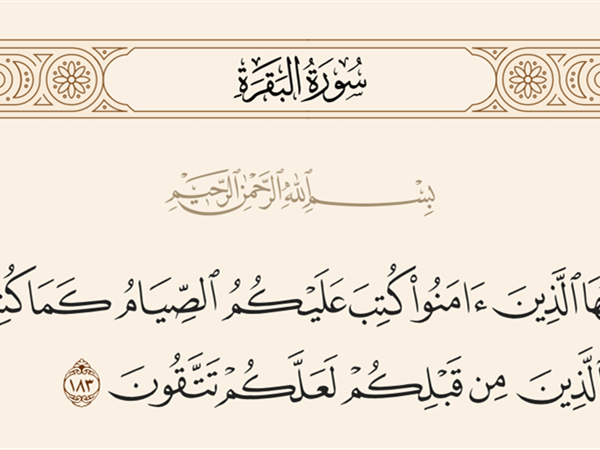 سُورَةُ البَقَرَةِ
بِسْمِ ٱللَّهِ ٱلرَّحْمَٰنِ ٱلرَّحِيمِ
ٱلَّذِينَ ءَامَنُوا۟ كُتِبَ عَلَيْكُمُ ٱلصِّيَامُ كَمَا
ٱلَّذِينَ مِن قَبْلِكُمْ لَعَلَّكُمْ تَتَّقُونَ ١٨٣